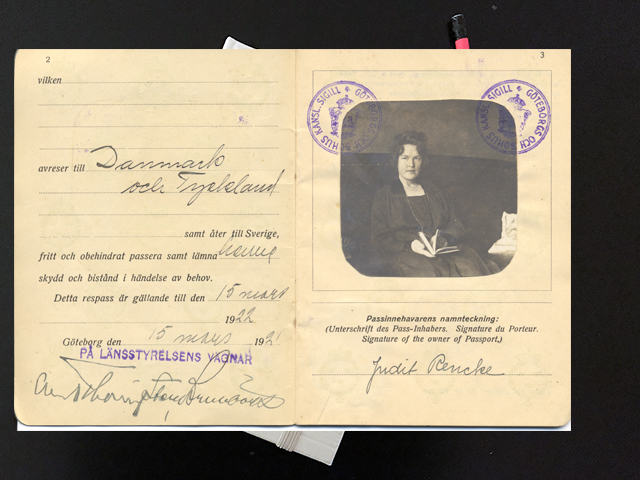 2
vilken
avreser till Danmark
och Tyskland
samt åter till Sverige,
fritt och obehindrat passera samt lämna henne
skydd och bistånd i händelse av behov.
Detta respass är gällande till den 15 mars
1922
Göteborg den 15 mars 1921
PÅ LÄNSSTYRELSENS VÄGNAR
3
KANSL. SIGILL ✦ GÖTEBORGS
KANSL. SIGILL ✦ GÖTEBORGS OCH BOHUS
Passinnehavarens namnteckning:
(Unterschrift des Pass-Inhabers. Signature du Porteur.
Signature of the owner of Passport.)
Judit Rencke